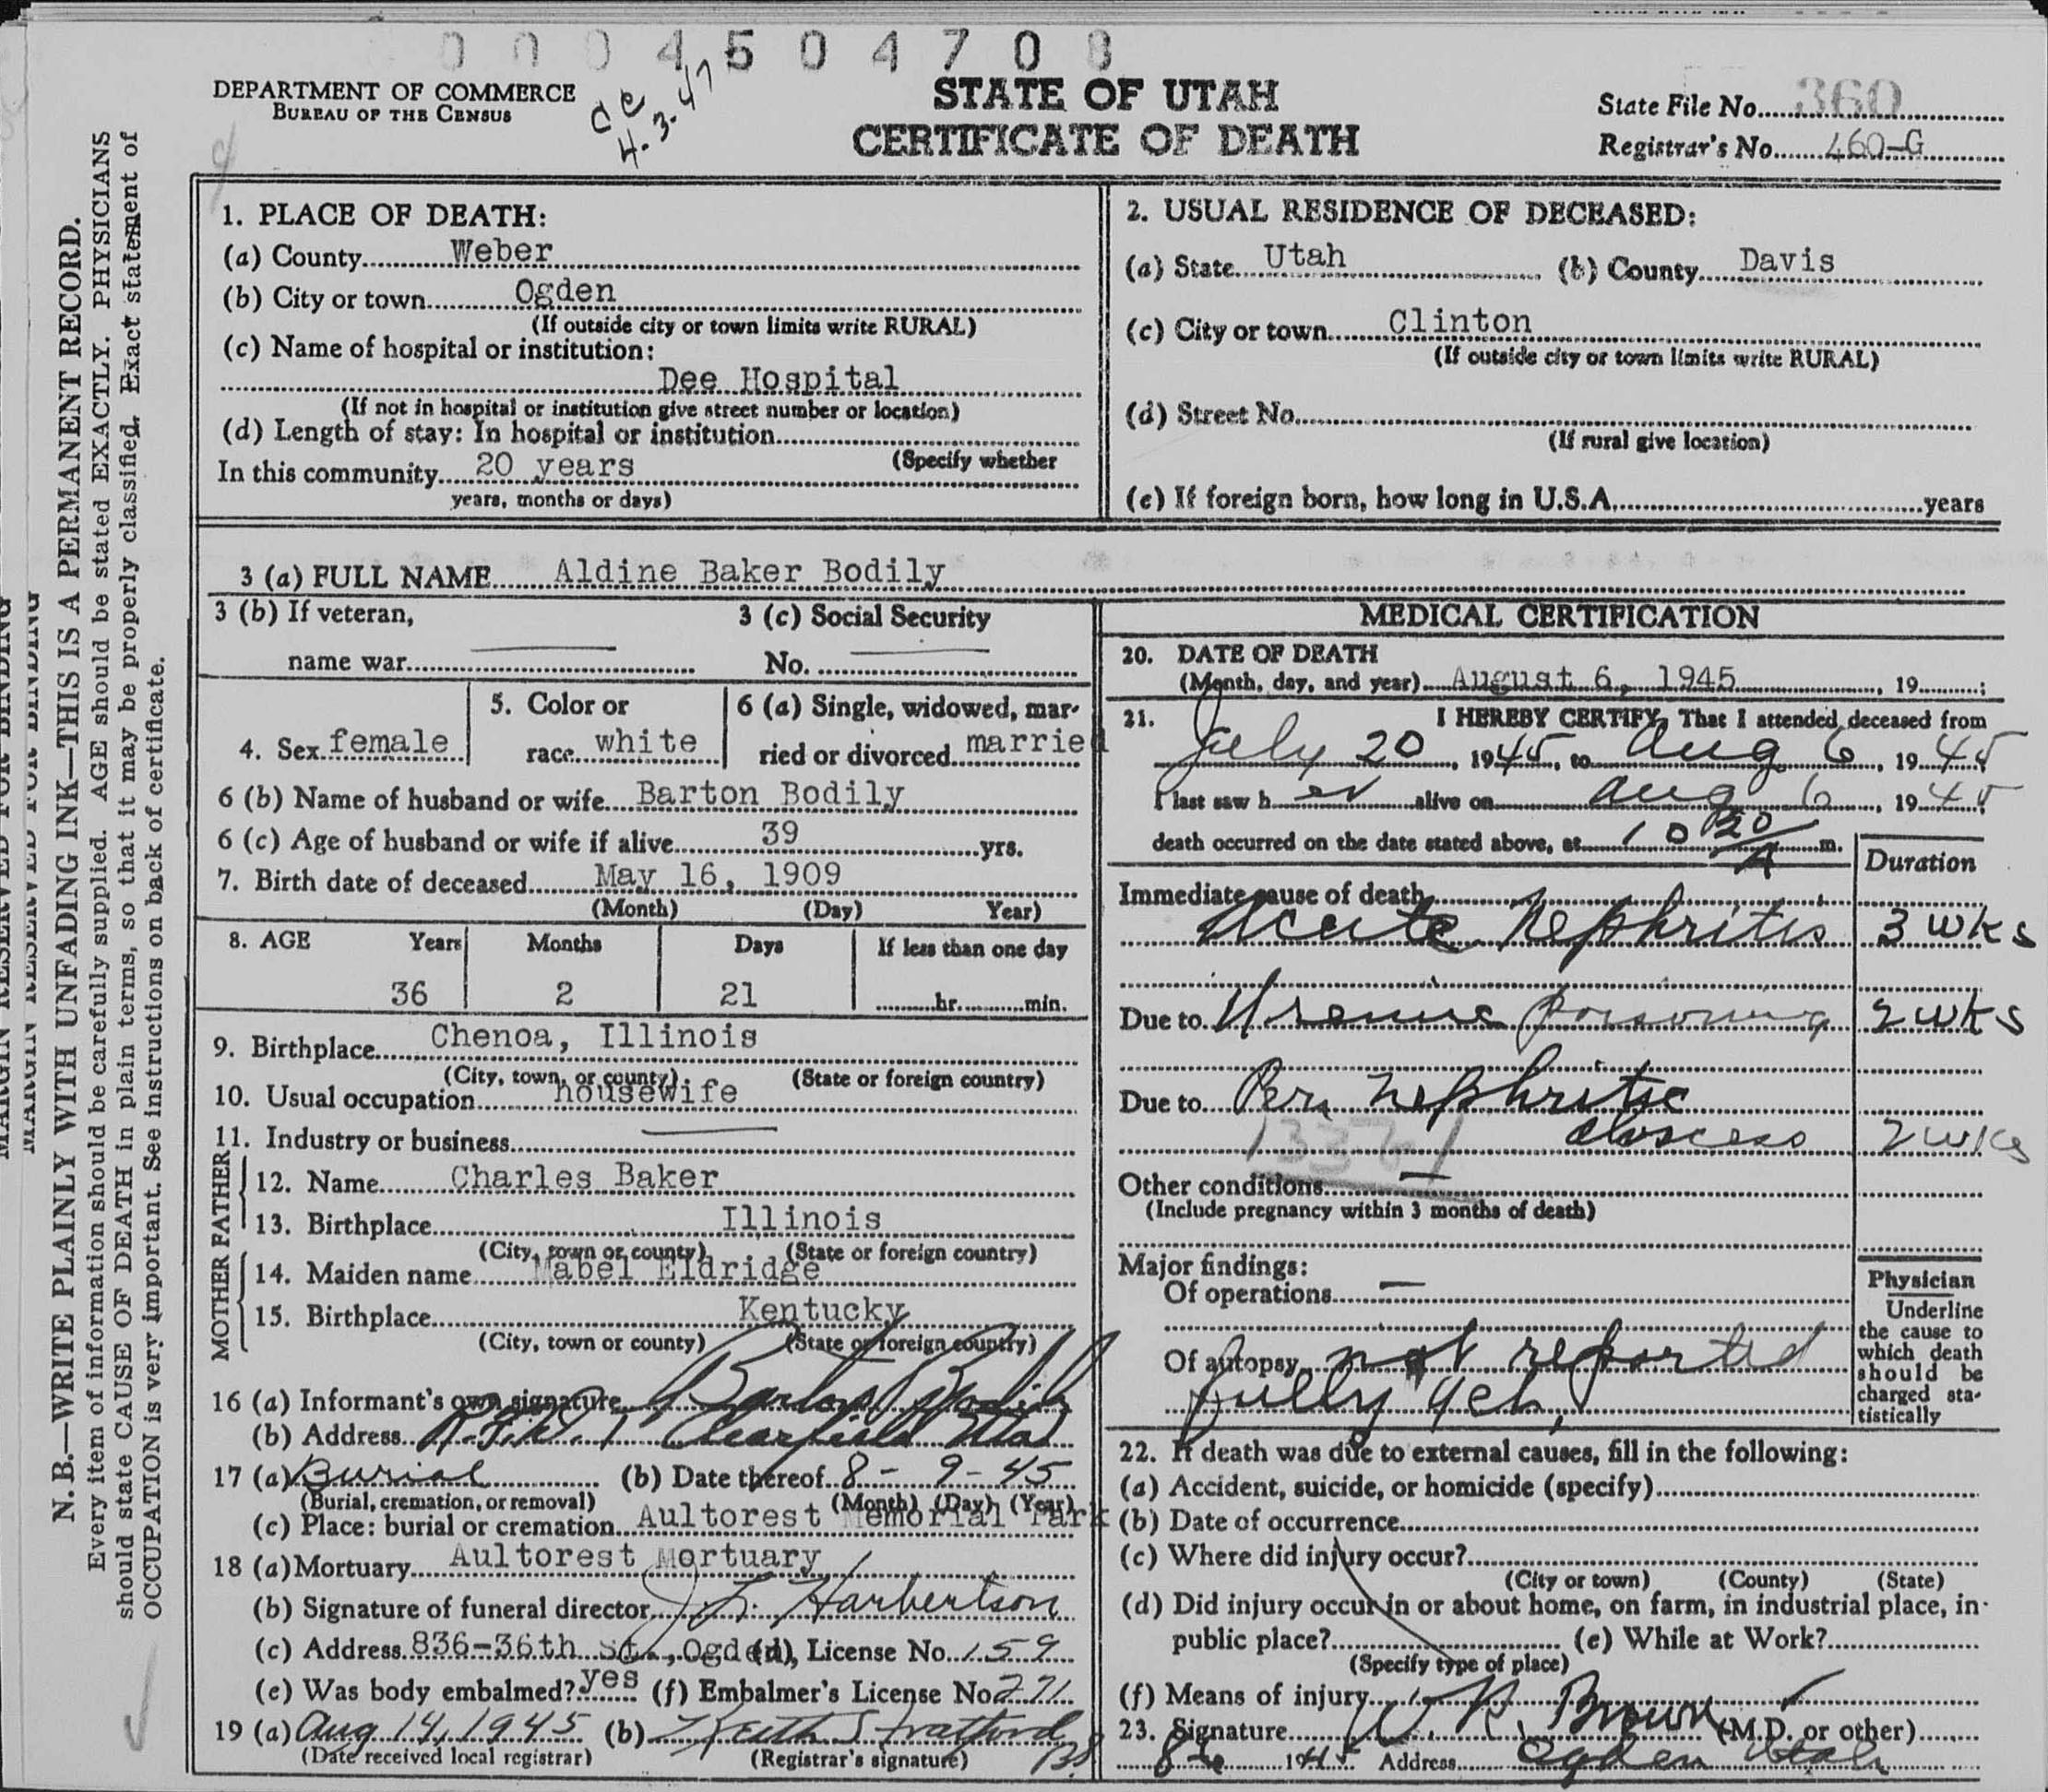 0004504708
DEPARTMENT OF COMMERCE
BUREAU OF THE CENSUS
4-3-47
STATE OF UTAH
CERTIFICATE OF DEATH
State File No. 360
Registrar's No. 460-G
MARGIN RESERVED FOR BINDING
MARGIN RESERVED FOR BINDING
N. B.—WRITE PLAINLY WITH UNFADING INK—THIS IS A PERMANENT RECORD.
Every item of information should be carefully supplied. AGE should be stated EXACTLY. PHYSICIANS
should state CAUSE OF DEATH in plain terms, so that it may be properly classified. Exact statement of
OCCUPATION is very important. See instructions on back of certificate.
1. PLACE OF DEATH:
(a) County Weber
(b) City or town Ogden
(If outside city or town limits write RURAL)
(c) Name of hospital or institution:
Dee Hospital
(If not in hospital or institution give street number or location)
(d) Length of stay: In hospital or institution
(Specify whether
In this community 20 years
years, months or days)
2. USUAL RESIDENCE OF DECEASED:
(a) State Utah (b) County Davis
(c) City or town Clinton
(If outside city or town limits write RURAL)
(d) Street No.
(If rural give location)
(e) If foreign born, how long in U.S.A. years
3 (a) FULL NAME Aldine Baker Bodily
3 (b) If veteran,
name war
3 (c) Social Security
No.
4. Sex female
5. Color or
race white
6 (a) Single, widowed, mar-
ried or divorced married
6 (b) Name of husband or wife Barton Bodily
6 (c) Age of husband or wife if alive 39 yrs.
7. Birth date of deceased May 16, 1909
(Month) (Day) Year)
8. AGE Years Months Days If less than one day
36 2 21 hr. min.
9. Birthplace Chenoa, Illinois
(City, town, or county) (State or foreign country)
10. Usual occupation housewife
11. Industry or business
FATHER
12. Name Charles Baker
13. Birthplace Illinois
(City, town or county) (State or foreign country)
MOTHER
14. Maiden name Mabel Eldridge
15. Birthplace Kentucky
(City, town or county) (State or foreign country)
16 (a) Informant's own signature Barton Bodily
(b) Address R.F.D. 1 Clearfield Utah
17 (a) Burial (b) Date thereof 8-9-45
(Burial, cremation, or removal) (Month) (Day) (Year)
(c) Place: burial or cremation Aultorest Memorial Park
18 (a) Mortuary Aultorest Mortuary
(b) Signature of funeral director J. L. Harbertson
(c) Address 836-36th St., Ogden, (d) License No. 159
(e) Was body embalmed? yes (f) Embalmer's License No 271
19 (a) Aug 14, 1945 (b) Keith Stratford
(Date received local registrar) (Registrar's signature)
MEDICAL CERTIFICATION
20. DATE OF DEATH
(Month, day, and year) August 6, 1945, 19 ;
21. I HEREBY CERTIFY, That I attended deceased from
July 20, 1945, to Aug 6, 1945
I last saw her alive on Aug 6, 1945;
death occurred on the date stated above, at 10 20 A m.
Duration
Immediate cause of death
Acute Nephritis 3 wks
Due to Uremic poisoning 2 wks
Due to Peri Nephritic
abscess 2 wks
Other conditions —
(Include pregnancy within 3 months of death)
Major findings:
Of operations —
Of autopsy not reported
fully yet.
Physician
Underline
the cause to
which death
should be
charged sta-
tistically
22. If death was due to external causes, fill in the following:
(a) Accident, suicide, or homicide (specify)
(b) Date of occurrence
(c) Where did injury occur?
(City or town) (County) (State)
(d) Did injury occur in or about home, on farm, in industrial place, in
public place? (e) While at Work?
(Specify type of place)
(f) Means of injury
23. Signature W. R. Brown (M.D. or other)
1945 Address Ogden Utah